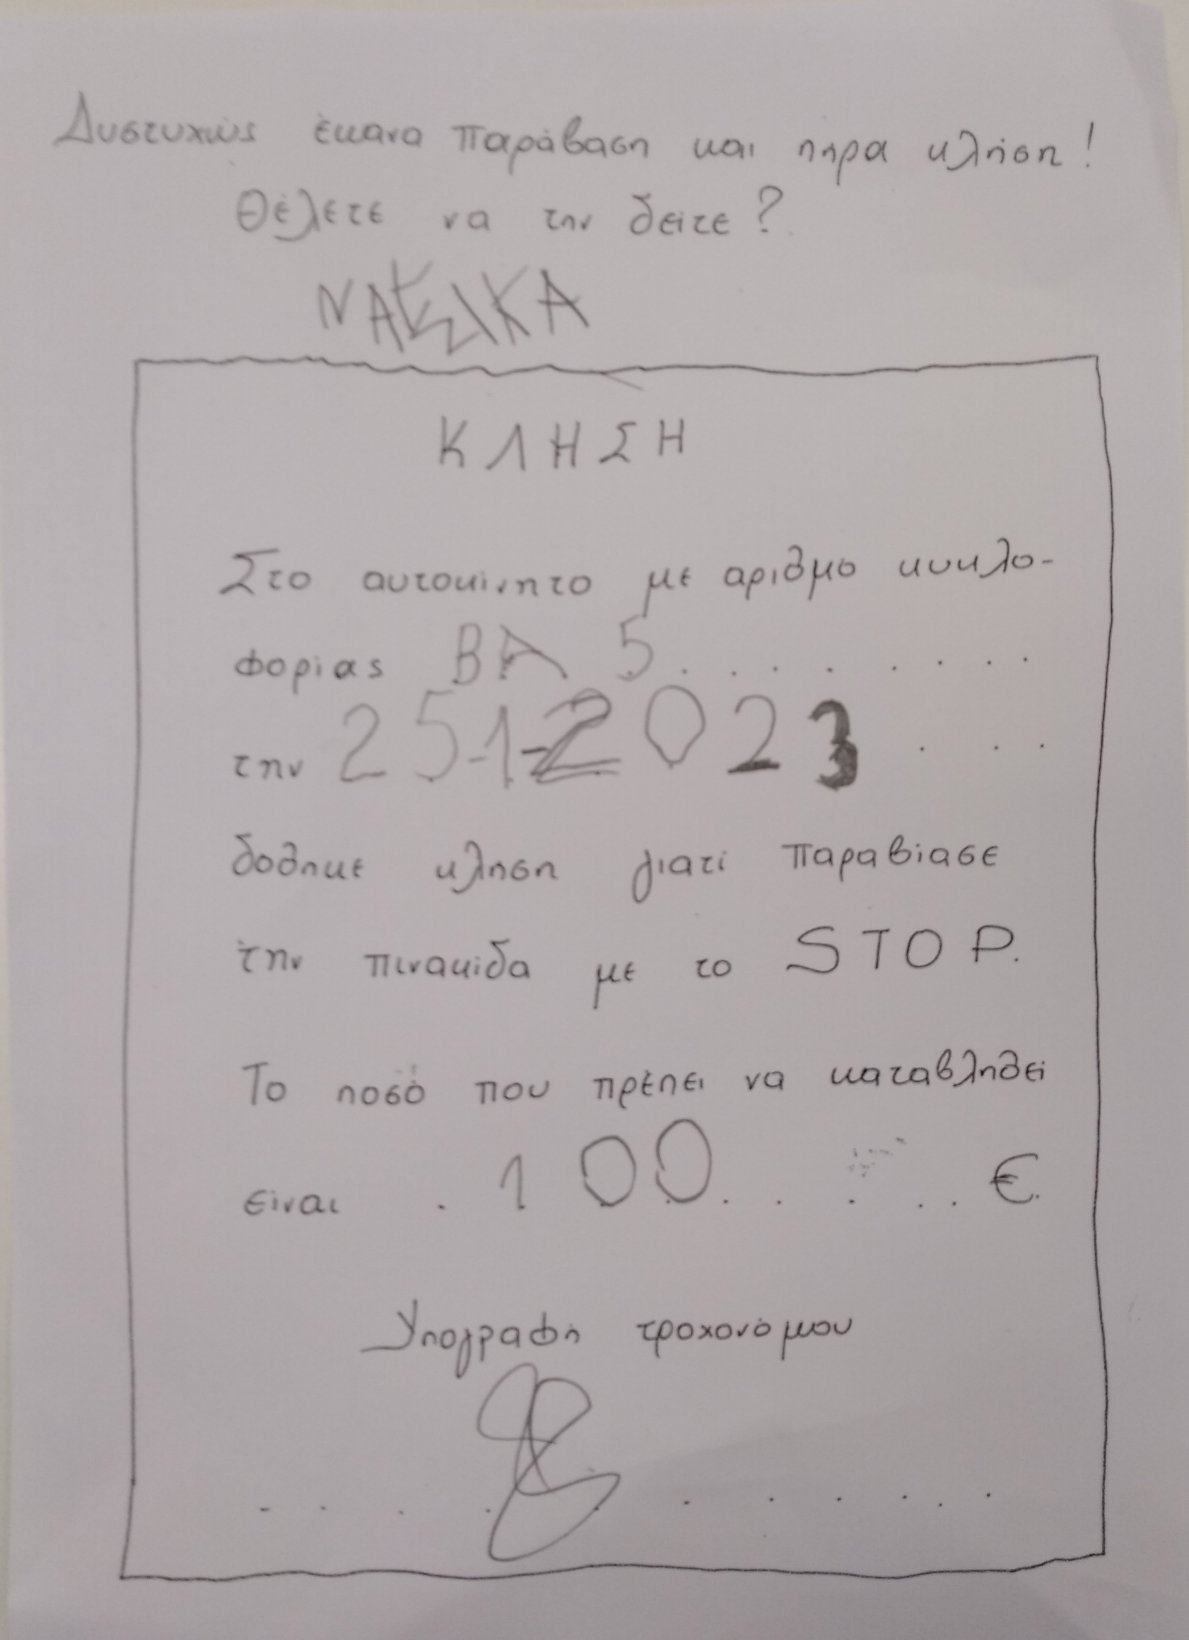 Δυστυχώς έκανα παράβαση και πήρα κλήση!
Θέλετε να την δείτε?
ΚΛΗΣΗ
Στο αυτοκίνητο με αριθμο κυκλο-
φορίας ΒΑ 5 . . . . . . .
την 25-1-2023 . . .
δοθηκε κληση γιατί παραβίασε
την πινακίδα με το STOP.
Το ποσό που πρέπει να καταβληθεί
είναι . 100 . . . . . €.
Υπογραφή τροχονόμου